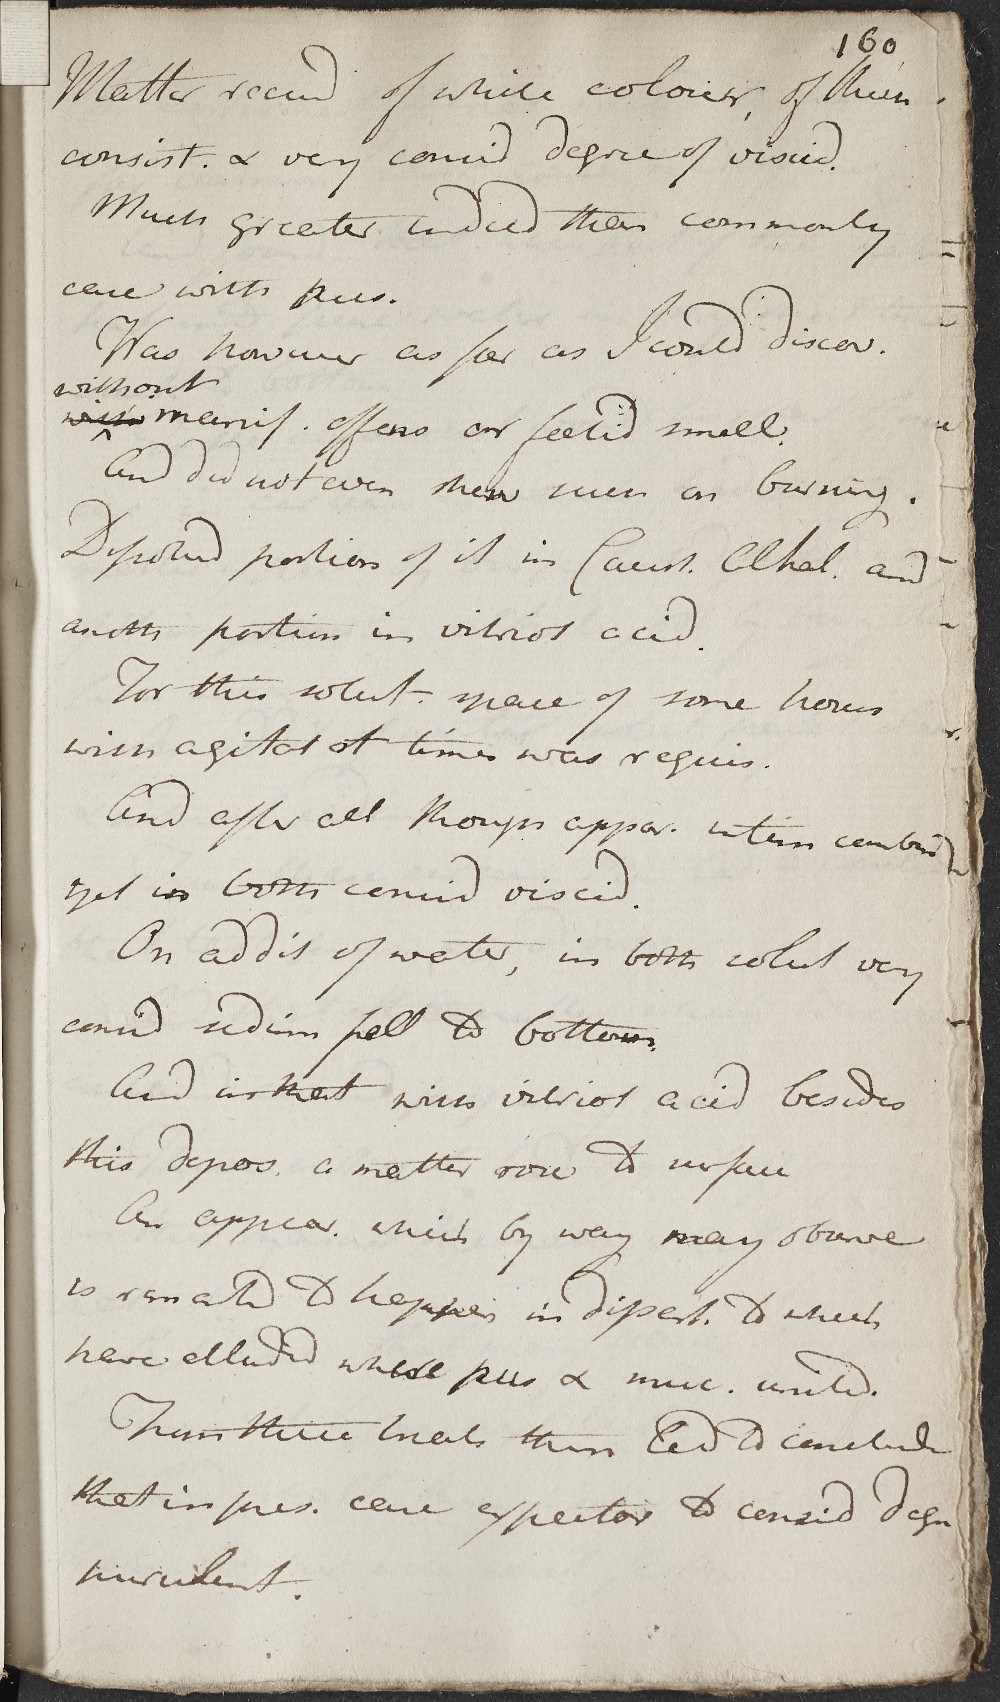 160
Matter recııd of white colour, of thin
consist. & very consid degree of viscid.
Much greater indeed than commonly
case with pus.
Was however as far as I could discov.
without
with manif. offens or foetid smell.
And did not even shew such on burning.
Dissolved portion of it in Caust. Alkal. and
anoth portion in vitriol acid.
For this solut. space of some hours
with agitat at times was requis.
And after all though appar. intim combin
yet in both consid viscid.
On addit of water, in both solut very
consid sedim fell to bottom.
And in that with vitriol acid besides
this depos. a matter rose to surface
An appear. which by way may observe
is remarked to happen in dissert. to which
have alluded where pus & muc. united.
From these trials then led to conclude
that in pres. case expector to consid degr
purulent.